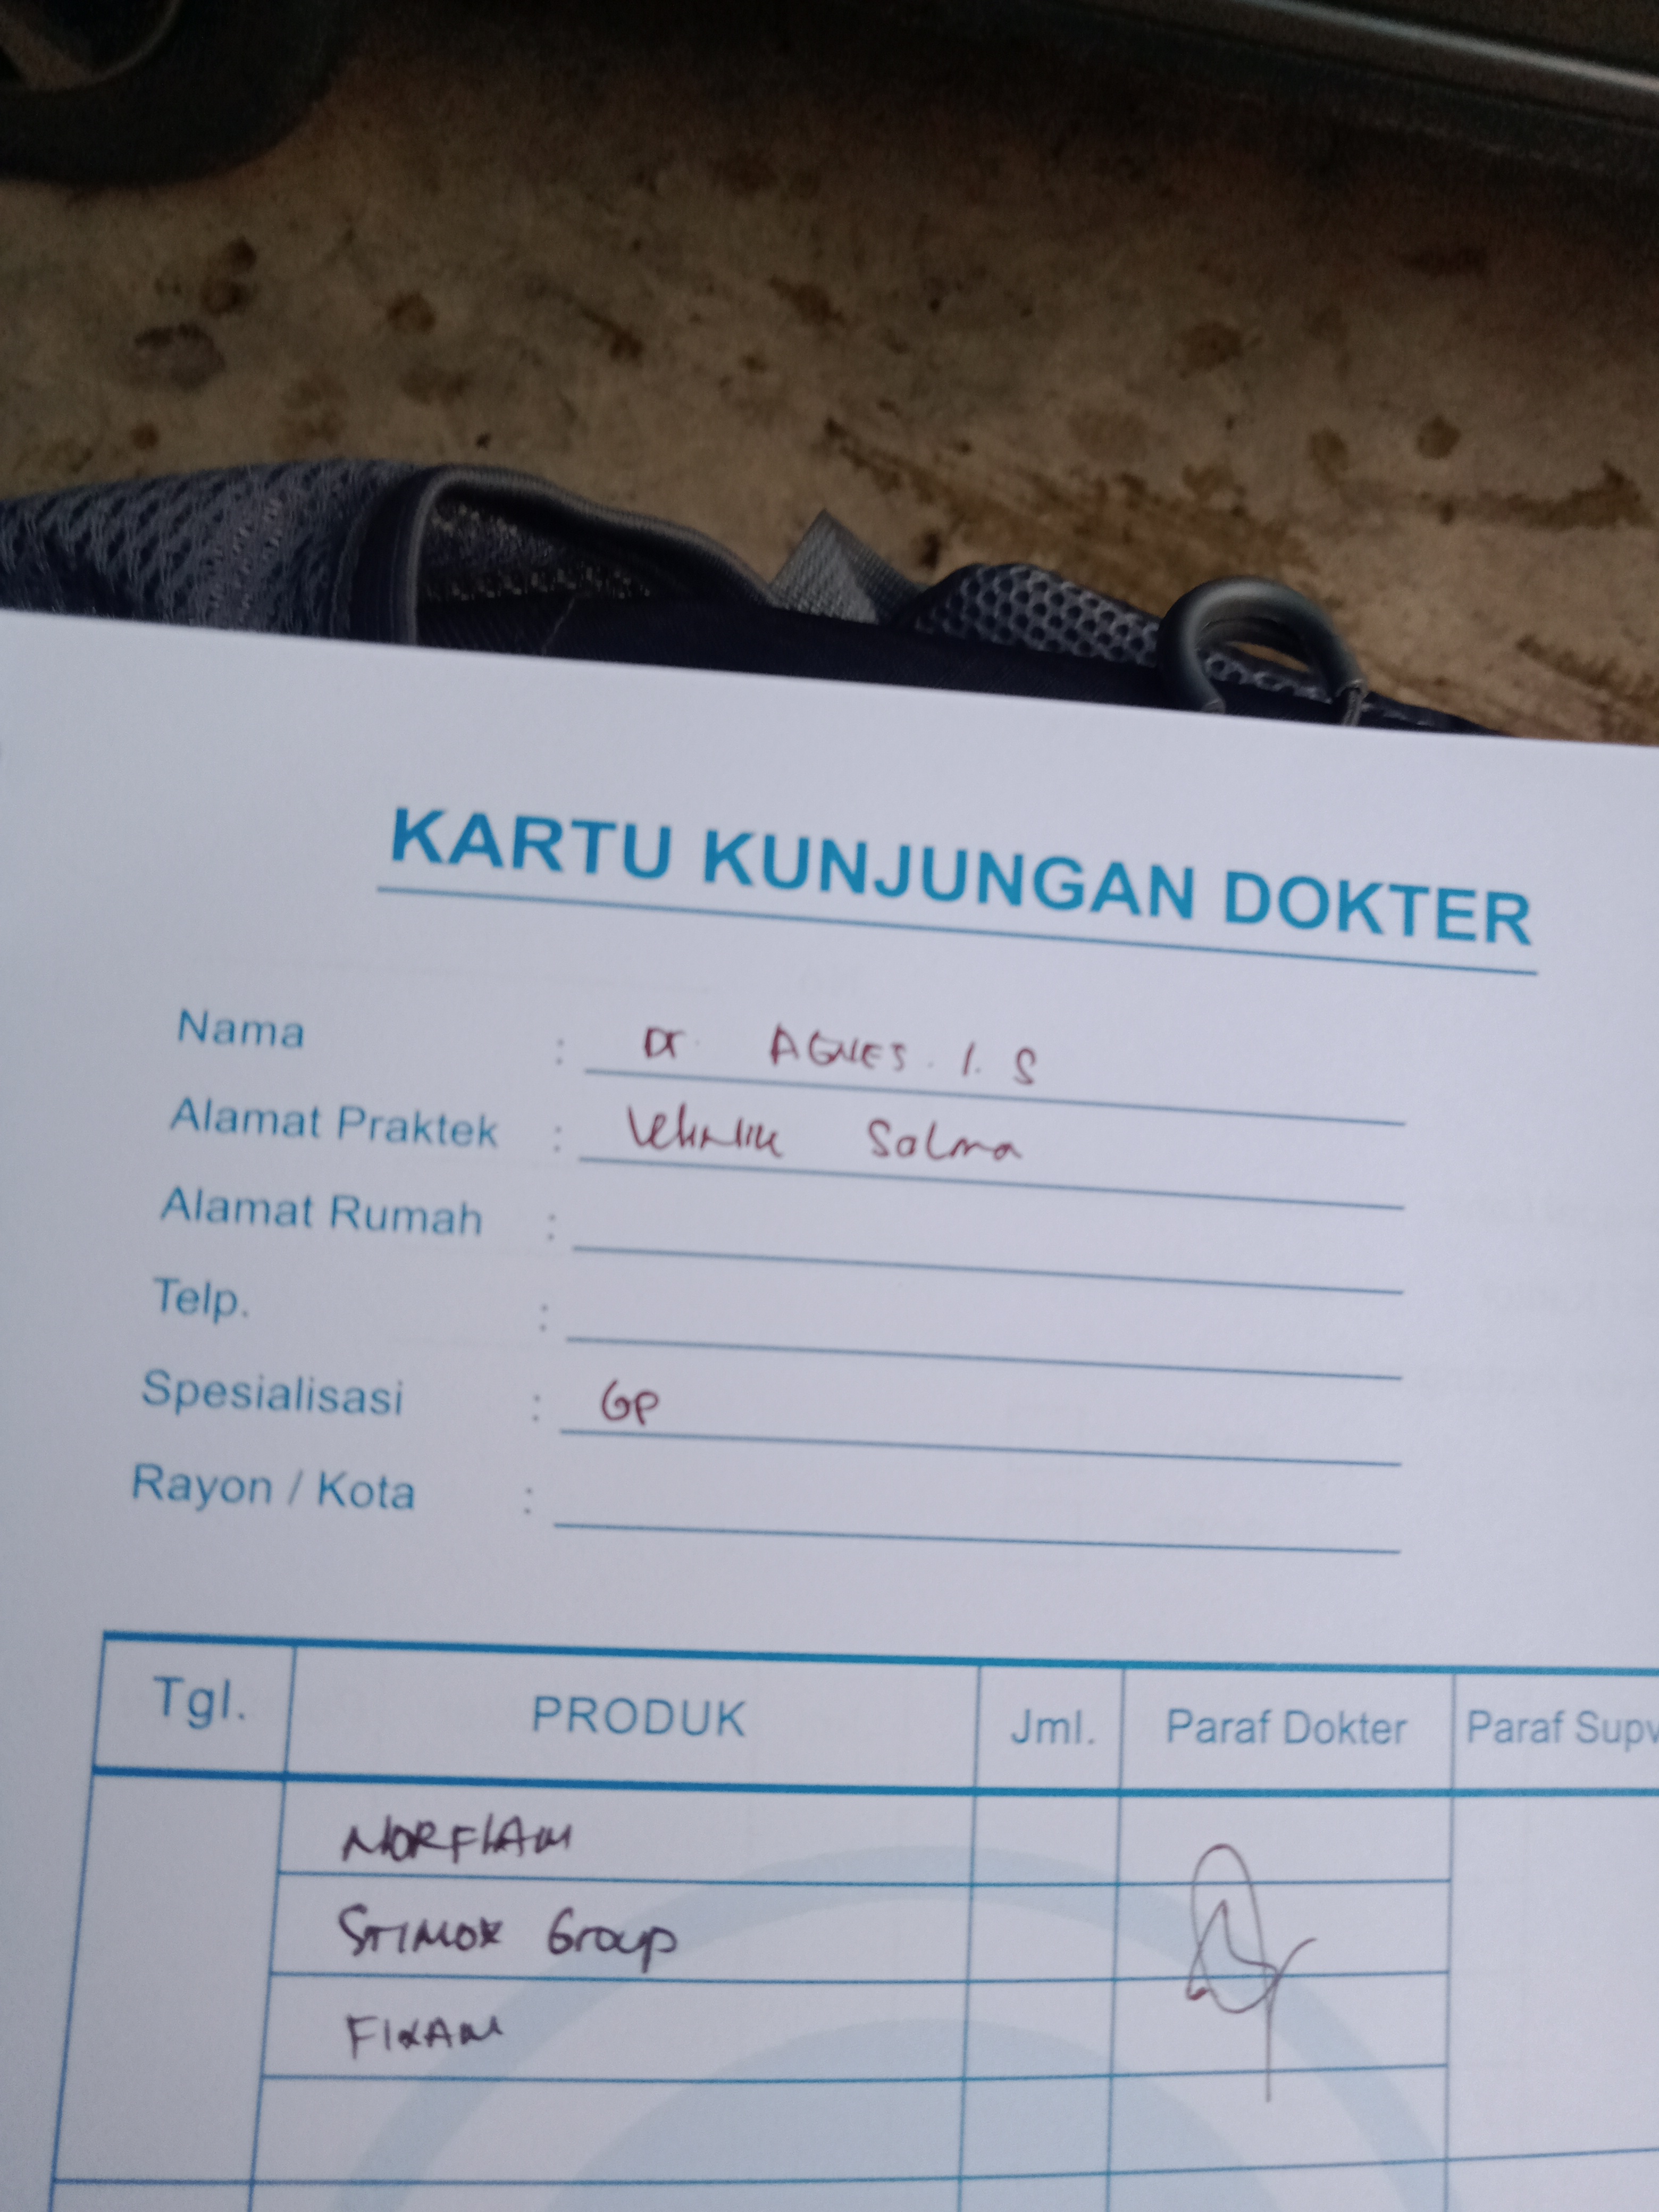 KARTU KUNJUNGAN DOKTER
Nama : Dr. AGNES. I. S
Alamat Praktek : Salma
Alamat Rumah :
Telp. :
Spesialisasi : GP
Rayon / Kota :
Tgl. PRODUK Jml. Paraf Dokter Paraf Supv
NORFLAM
STIMOX Group
FIXAM